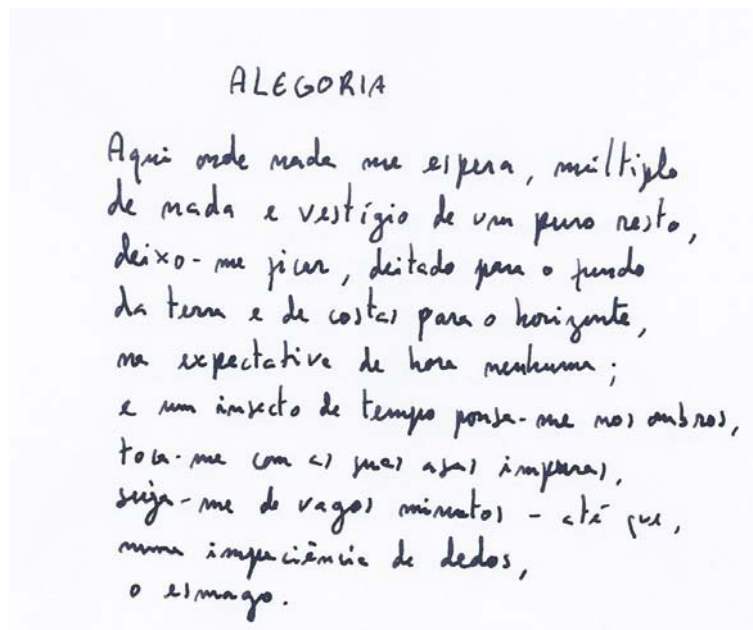 ALEGORIA
Aqui onde nada me espera, múltiplo
de nada e vestígio de um puro resto,
deixo-me ficar, deitado para o fundo
da terra e de costas para o horizonte,
na expectativa de hora nenhuma;
e um insecto de tempo pousa-me nos ombros,
toca-me com as suas asas impuras,
suja-me de vagos minutos - até que,
numa impaciência de dedos,
o esmago.